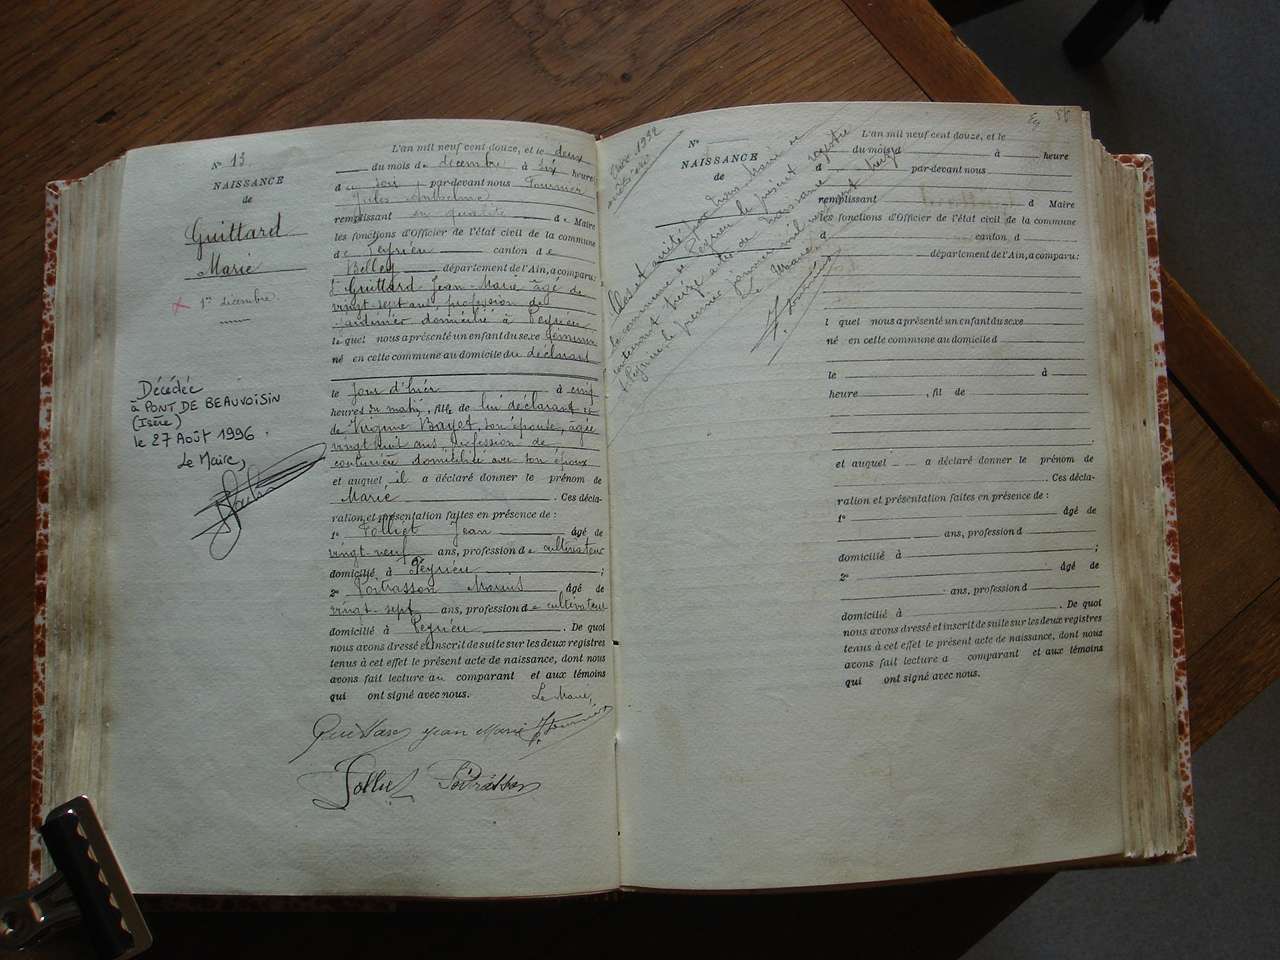 N° 13.
NAISSANCE
de
Guillard
Marie
1er décembre
Décédée
à PONT DE BEAUVOISIN
(Isère)
le 27 Août 1996.
Le Maire,
L'an mil neuf cent douze, et le deux
du mois de décembre à six heure
du soir par-devant nous Fournier
Jules
remplissant en qualité de Maire
les fonctions d'Officier de l'état civil de la commune
de Peyrieu canton de
Belley département de l'Ain, a comparu:
Guillard Jean-Marie âgé de
vingt-sept ans profession de
domicilié à Peyrieu
le quel nous a présenté un enfant du sexe féminin
né en cette commune au domicile du déclarant
le jour d'hier à cinq
heures du matin, fille de lui déclarant et
de Virginie Bayet, son épouse, âgée
vingt huit ans profession de
couturière domiciliée avec son époux
et auquel il a déclaré donner le prénom de
Marie . Ces décla-
ration et présentation faites en présence de :
1° Jolliet Jean âgé de
vingt-neuf ans, profession de cultivateur
domicilié à Peyrieu ;
2° Poitrasson Marius âgé de
vingt-sept ans, profession de cultivateur
domicilié à Peyrieu . De quoi
nous avons dressé et inscrit de suite sur les deux registres
tenus à cet effet le présent acte de naissance, dont nous
avons fait lecture au comparant et aux témoins
qui ont signé avec nous.
Le Maire,
Guillard Jean Marie J. Fournier
Jolliet Poitrasson
N°
NAISSANCE
de
Clos et arrêté par nous, Maire de
la commune de Peyrieu le présent registre
contenant treize actes de naissance
à Peyrieu le premier janvier mil neuf cent treize
Le Maire
J. Fournier
L'an mil neuf cent douze, et le
du mois d à heure
d par-devant nous
remplissant d Maire
les fonctions d'Officier de l'état civil de la commune
d canton d
département de l'Ain, a comparu:
l quel nous a présenté un enfant du sexe
né en cette commune au domicile d
le à
heure , fil de
et auquel a déclaré donner le prénom de
. Ces décla-
ration et présentation faites en présence de :
1° âgé de
ans, profession d
domicilié à ;
2° âgé de
ans, profession d
domicilié à . De quoi
nous avons dressé et inscrit de suite sur les deux registres
tenus à cet effet le présent acte de naissance, dont nous
avons fait lecture a comparant et aux témoins
qui ont signé avec nous.